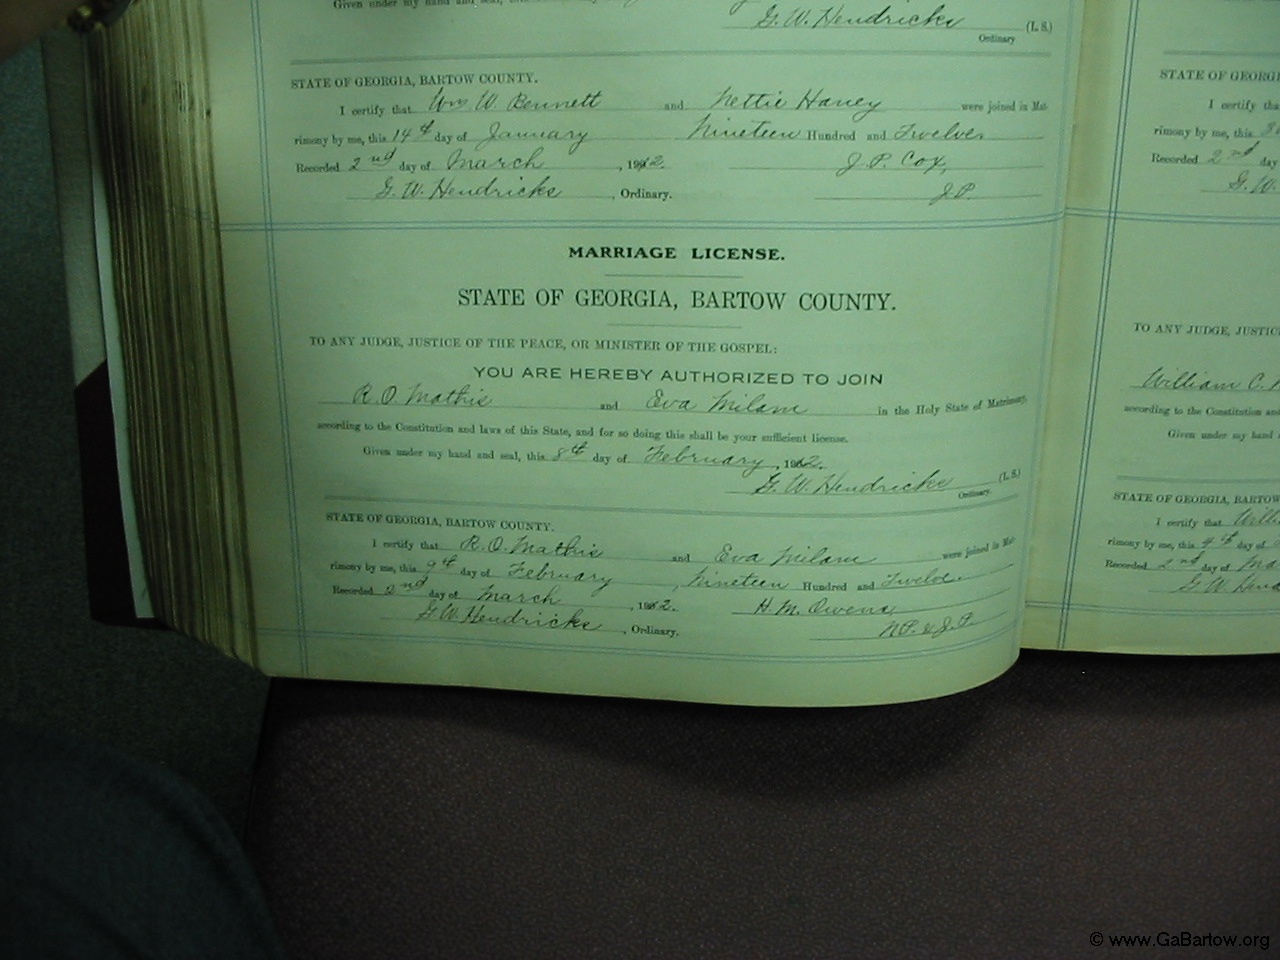 Given under my hand and seal, this
G. W. Hendricks (L. S.)
Ordinary
STATE OF GEORGIA, BARTOW COUNTY.
I certify that Wm W. Bennett and Nettie Haney were joined in Mat-
rimony by me, this 14th day of January Nineteen Hundred and Twelve.
Recorded 2nd day of March, 1912. J. P. Cox,
G. W. Hendricks, Ordinary. J.P.
MARRIAGE LICENSE.
STATE OF GEORGIA, BARTOW COUNTY.
TO ANY JUDGE, JUSTICE OF THE PEACE, OR MINISTER OF THE GOSPEL:
YOU ARE HEREBY AUTHORIZED TO JOIN
R. O. Mathis and Eva Milam in the Holy State of Matrimony,
according to the Constitution and laws of this State, and for so doing this shall be your sufficient license.
Given under my hand and seal, this 8th day of February, 1912.
G. W. Hendricks (L. S.)
Ordinary.
STATE OF GEORGIA, BARTOW COUNTY.
I certify that R. O. Mathis and Eva Milam were joined in Mat-
rimony by me, this 9th day of February, Nineteen Hundred and Twelve.
Recorded 2nd day of March, 1912. H. M. Owens,
G. W. Hendricks, Ordinary. N.P. & J.P.
STATE OF GEORGI
I certify tha
rimony by me, this
Recorded 2nd day
G. W.
TO ANY JUDGE, JUSTIC
William C.
according to the Constitution an
Given under my hand
STATE OF GEORGIA, BARTOW
I certify that Willi
rimony by me, this 4th day of
Recorded 2nd day of Ma
G. W. Hend
© www.GaBartow.org